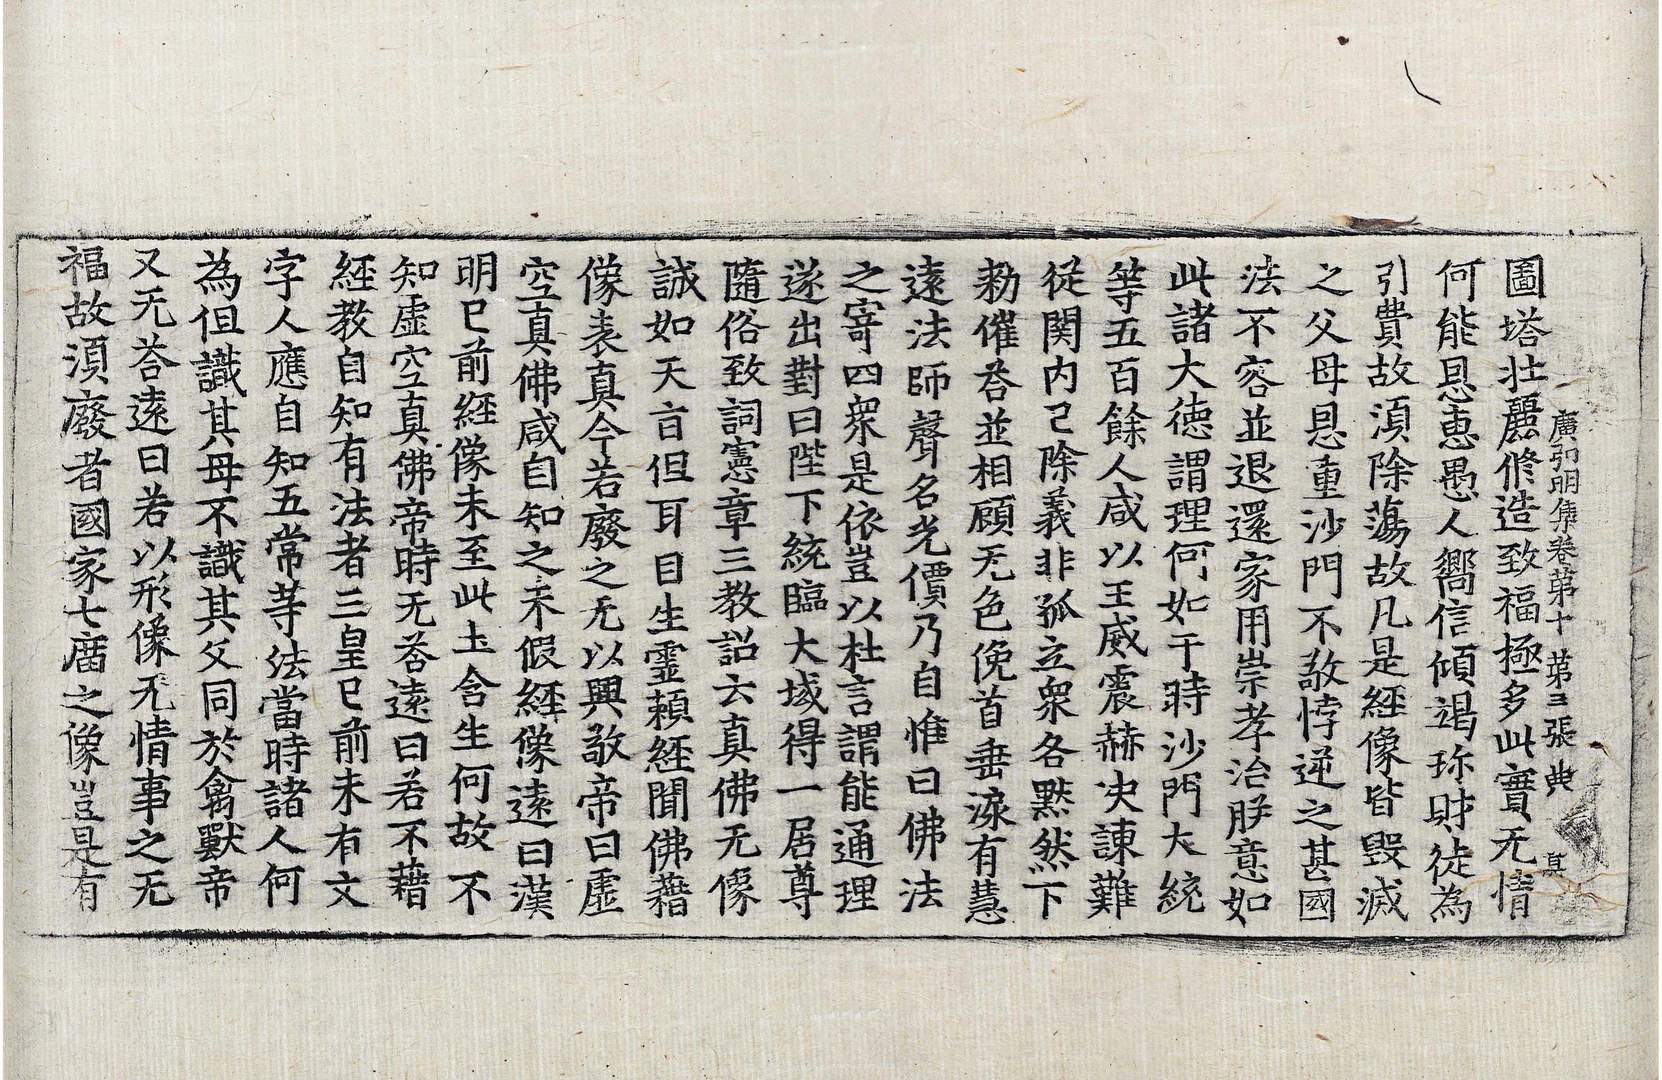 廣弘明集卷第十 第三張 典 真
圖塔壯麗修造致福極多此實无情
何能恩惠愚人嚮信傾竭珎財徒為
引費故湏除蕩故凡是經像皆毀滅
之父母恩重沙門不敬悖逆之甚國
法不容並退還家用崇孝治朕意如
此諸大德謂理何如于時沙門大統
等五百餘人咸以王威震赫决諫難
從関內已除義非孤立衆各黙然下
勑催荅並相顧无色俛首垂淚有慧
遠法師聲名光價乃自惟曰佛法
之寄四衆是依豈以杜言謂能通理
遂出對曰陛下統臨大域得一居尊
隨俗致詞憲章三教詔云真佛无像
誠如天言但耳目生靈頼經聞佛藉
像表真今若廢之无以興敬帝曰虛
空真佛咸自知之未假經像遠曰漢
明已前經像未至此土含生何故不
知虛空真佛帝時无荅遠曰若不藉
經教自知有法者三皇已前未有文
字人應自知五常等法當時諸人何
為但識其母不識其父同於禽獸帝
又无荅遠曰若以形像无情事之无
福故湏廢者國家七庿之像豈是有